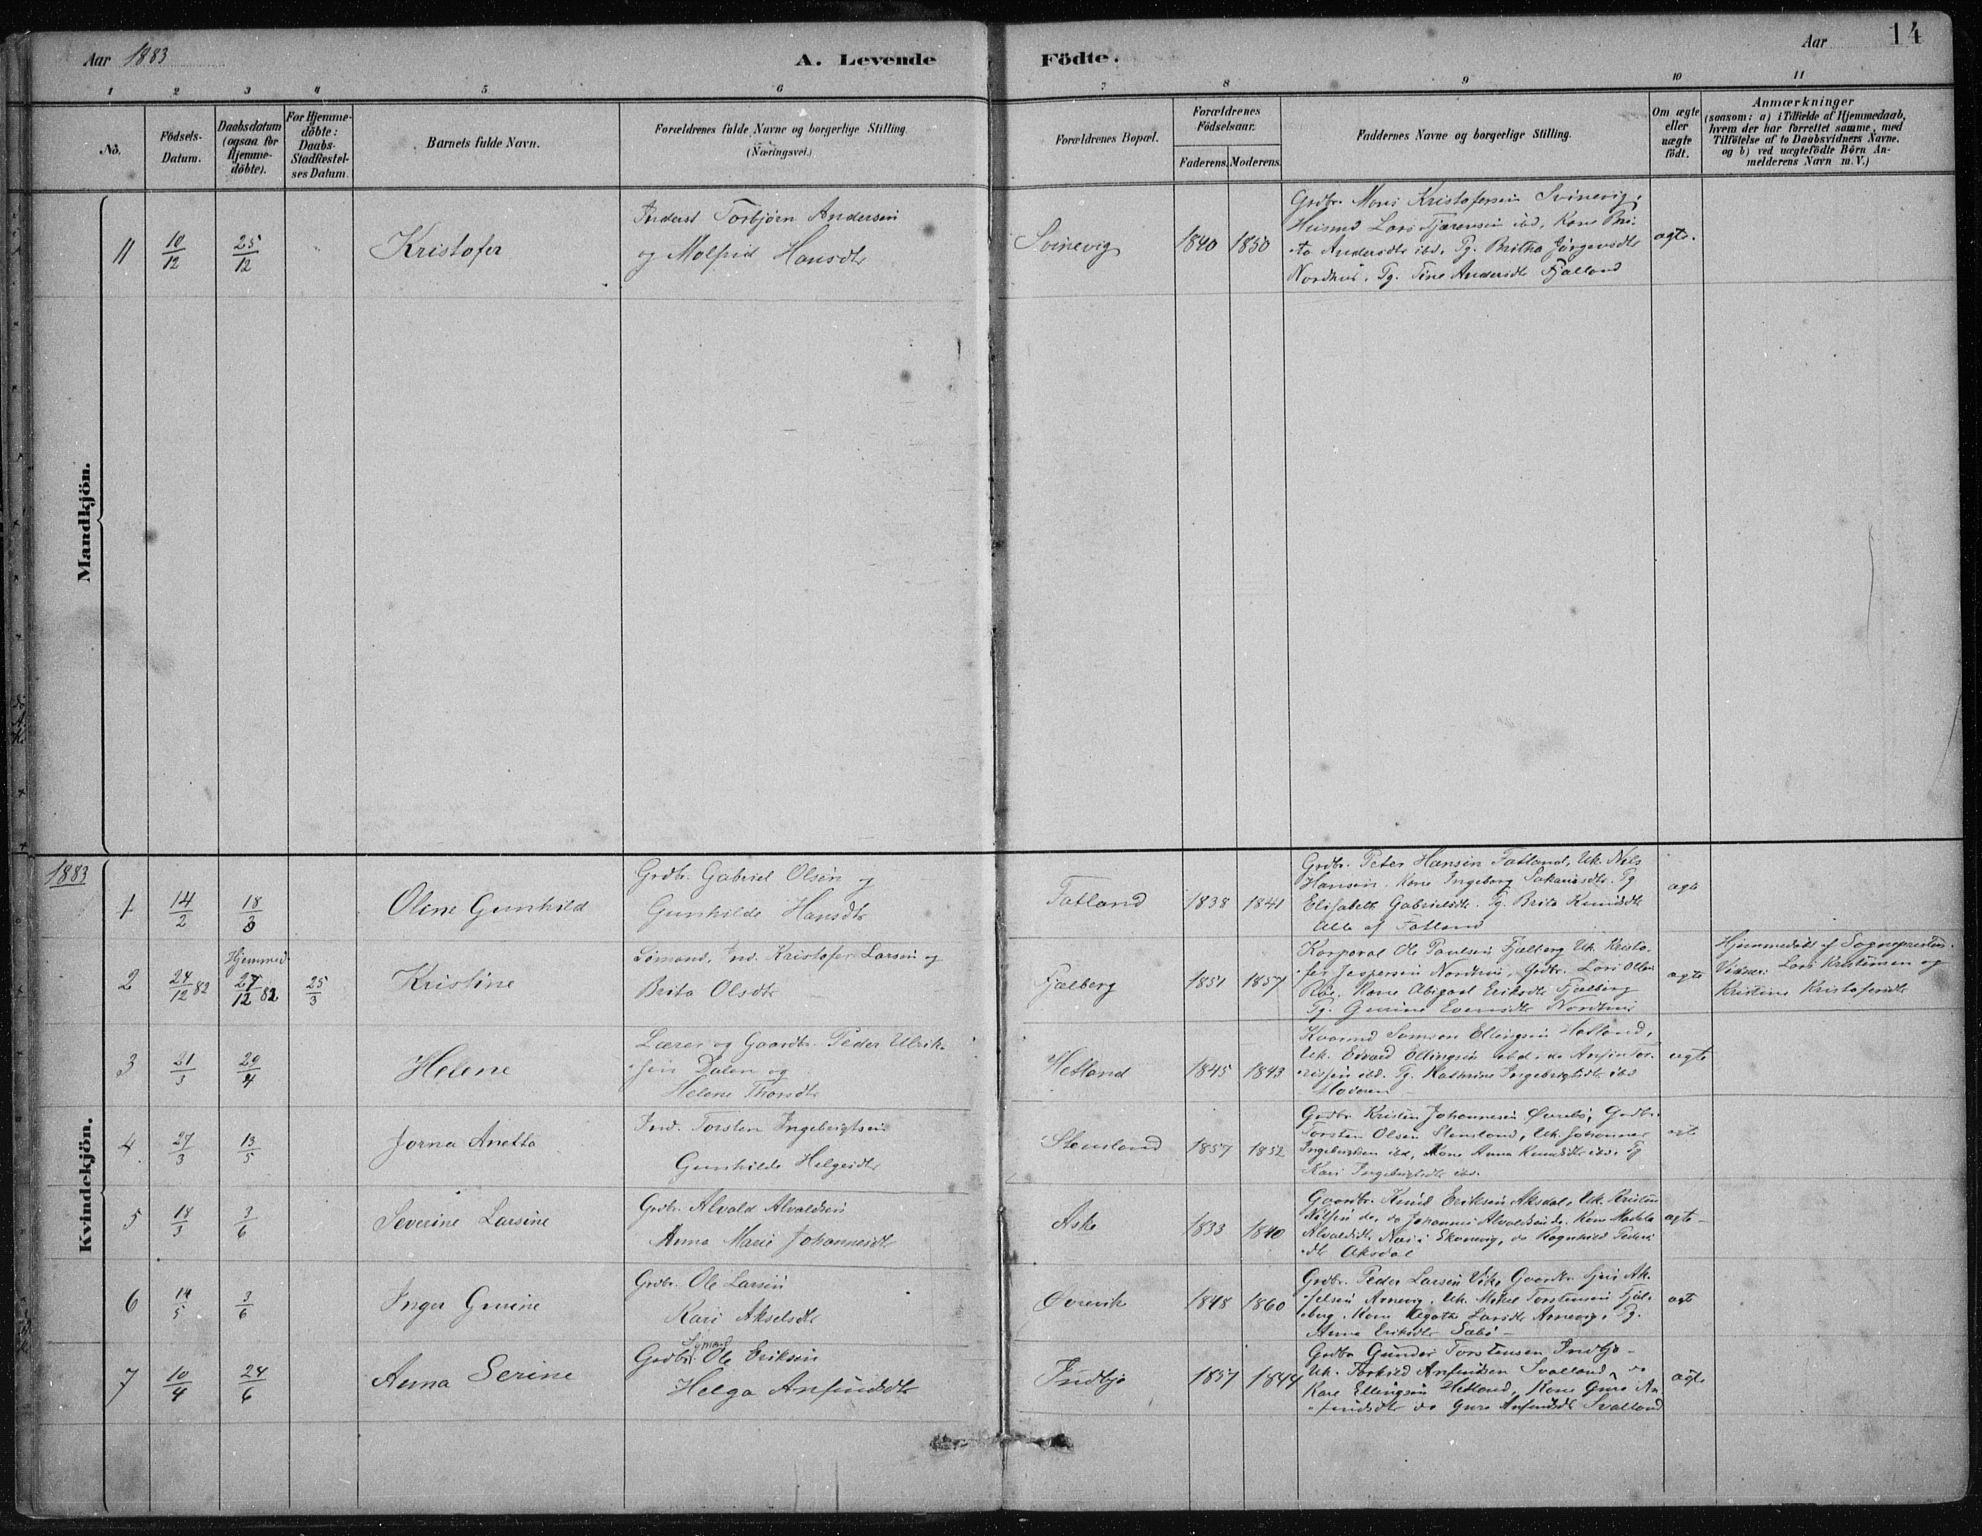 Aar 1883
A. Levende
Födte.
Aar
14
1 2 3 4 5 6 7 8 9 10 11
No.
Födsels-
Datum.
Daabsdatum
(ogsaa for
Hjemme-
döbte).
For Hjemme-
döbte:
Daabs-
Stadfæstel-
ses Datum.
Barnets fulde Navn.
Forældrenes fulde Navne og borgerlige Stilling.
(Næringsvei.)
Forældrenes Bopæl.
Forældrenes
Födselsaar.
Faderens. Moderens.
Faddernes Navne og borgerlige Stilling.
Om ægte
eller
uægte
födt.
Anmærkninger
(saasom: a) i Tilfælde af Hjemmedaab,
hvem der har forrettet samme, med
Tilföielse af to Daabsvidners Navne.
og b) ved uægtefödte Börn An-
melderens Navn m. V.)
Mandkjön.
11 10/12 25/12
Kristofer
Inderst Torbjørn Andersen
og Malfrid Hansdtr
Svinevig
1840 1850
Grdbr. Mons Kristofersen Svinevig,
Husmd Lars Fjærensen ibd, Kone Bri-
ta Andersdtr ibd, Pg. Britha Jørgensdtr
Nordhus, Pg. Tine Andersdtr Fjælland
ægte.
1883
Kvindekjön.
1 14/2 18/3
Oline Gunhild
Grdbr. Gabriel Olsen og
Gunhilde Hansdtr
Fatland
1838 1841
Grdbr. Peter Hansen Fatland, Uk. Nils
Hansen, Kone Ingeborg Sakariasdtr. Pg
Elisabeth Gabrielsdtr. Pg. Brita Knudsdtr
Alle af Fatland
ægte
2 24/12 82
Hjemmed.
27/12 82
25/3
Kristine
Sømand, Ind. Kristofer Larsen og
Brita Olsdtr
Fjælberg
1851 1857
Korporal Ole Paulsen Fjælberg Uk. Kristo-
fer Jespersen Nordhus, Grdbr. Lars Olsen
Kone Abigael Eriksdtr Fjælberg
Pg. Gurine Evensdtr Nordhus
ægte
Hjemmedøbt af Sognepresten.
Vidner: Lars Kristensen og
Kristine Kristofersdtr
3 21/3 29/4
Helene
Lærer og Gaardbr. Peder Ulrik-
sen Dalen og
Helene Thorsdtr
Hetland
1845 1843
Kvarmd Samson Ellingsen Hetland,
Uk. Edvard Ellingsen ibd, do Anfin Tor-
risen ibd. Pg. Kathrine Ingebrigtsdtr ibd
ægte
4 27/3 13/5
Jorna Anetta
Ind. Torsten Ingebrigtsen
Gunhilde Helgesdtr
Stensland
1857 1852
Grdbr. Kristen Johannesen Øvrebø, Grdbr.
Torsten Olsen Stensland, Uk. Johannes
Ingebrigtsen ibd, Kone Anna Knudsdtr ibd. Pg
Kari Ingebrigtsdtr ibd.
ægte
5 18/3 3/6
Severine Larsine
Grdbr. Alvald Alvaldsen
Anna Marie Johannesdtr
Aske
1833 1840
Gaardbr. Knud Eriksen Aksdal, Uk. Kristen
Nilsen do, do Johannes Alvaldsen do. Kone
Alvaldsdtr Ekornvig, do Ragnhild Peders
dtr Aksdal
ægte
6 14/5 3/6
Inger Gurine
Grdbr. Ole Larsen
Kari Akselsdtr
Øvrevik
1848 1860
Grdbr. Peder Larsen Vike, Gaardbr. Ak-
selsen Arnevig, Uk. Mikel Torstensen Fjæl-
berg, Kone Agathe Larsdtr Arnevig, Pg.
Anna Eriksdtr Sæbø
ægte
7 10/4 24/6
Anna Serine
Sømand
Grdbr. Ole Eriksen
Helga Anfindsdtr
Indtjø
1857 1844
Grdbr Gunder Torstensen Indtjø
Uk. Torkild Anfindsen Svalland, do
Karl Ellingsen Hetland, Kone Guro An-
findsdtr do Guro Anfindsdtr Svalland
ægte